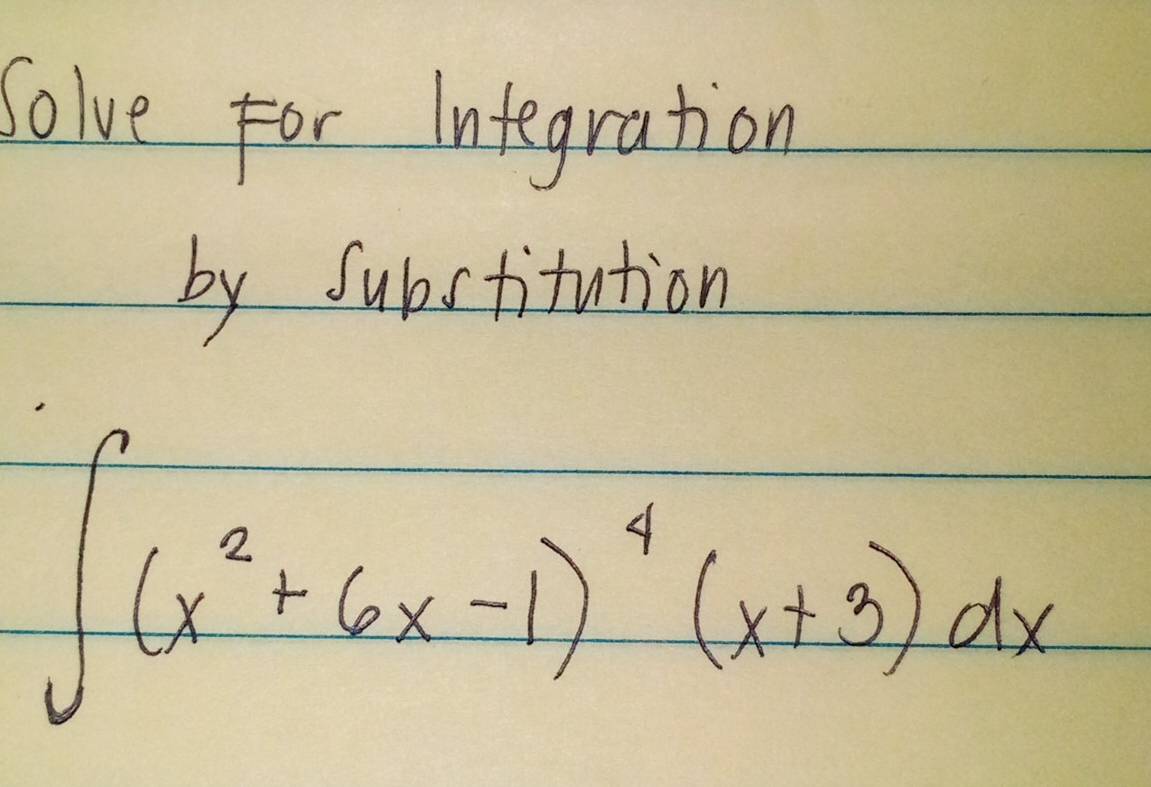 Solve For Integration
by Substitution
∫(x² + 6x - 1)⁴ (x+3) dx